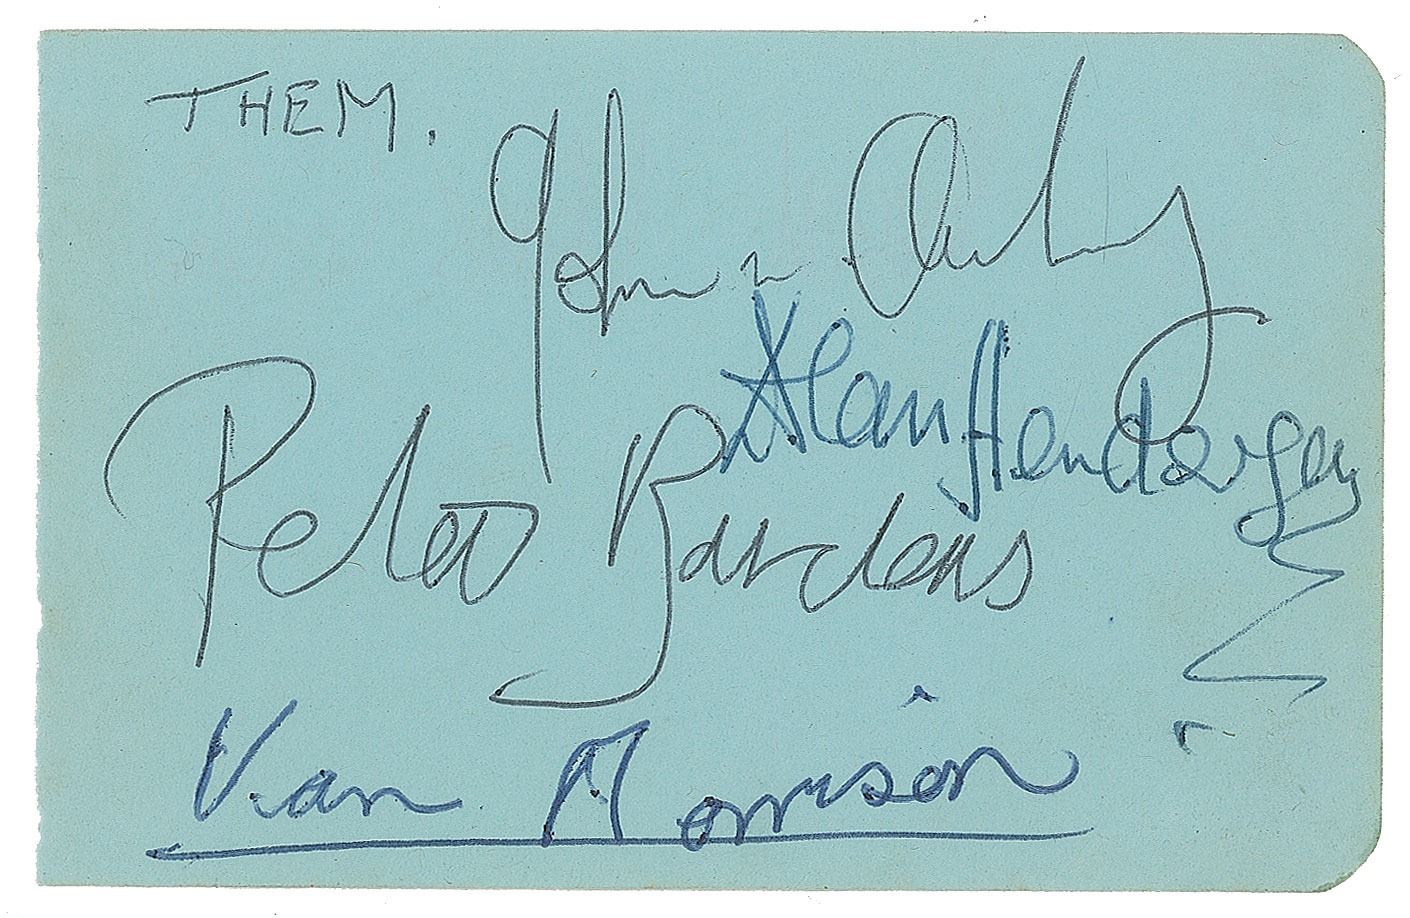 THEM.
John McAuley
Alan Henderson
Peter Bardens
Van Morrison